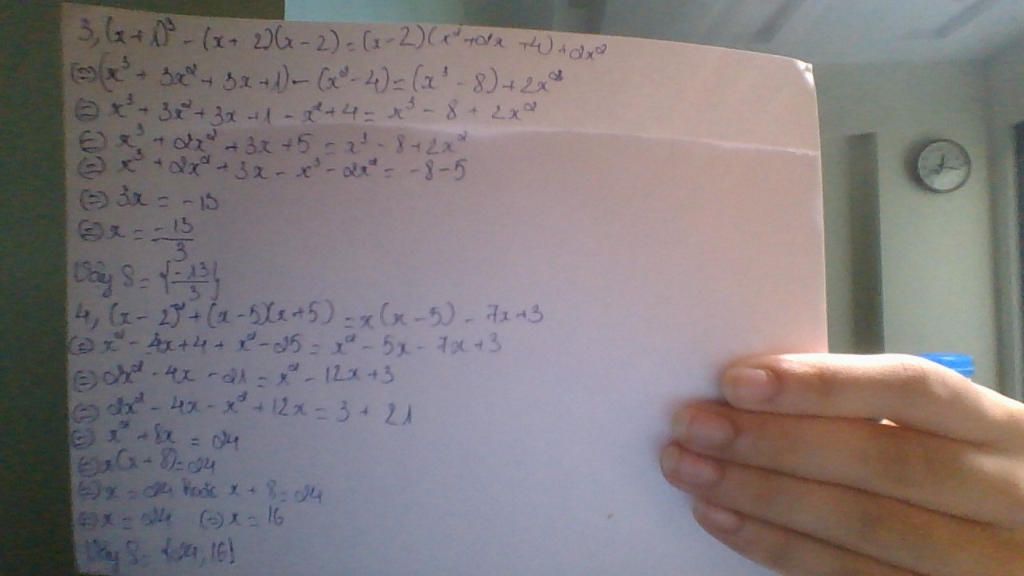 3, (x+1)³ - (x+2)(x-2) = (x-2)(x²+2x+4)+2x²
(=) (x³ + 3x² + 3x+1) - (x²-4) = (x³-8)+2x²
(=) x³ + 3x² + 3x + 1 - x² + 4 = x³ - 8 + 2x²
(=) x³ + 2x² + 3x + 5 = x³ - 8 + 2x²
(=) x³ + 2x² + 3x - x³ - 2x² = -8-5
(=) 3x = -13
(=) x = -13/3
Vậy S = {-13/3}
4, (x-2)² + (x-5)(x+5) = x(x-5) - 7x+3
(=) x² - 4x+4 + x² - 25 = x² - 5x - 7x+3
(=) 2x² - 4x - 21 = x² - 12x+3
(=) 2x² - 4x - x² + 12x = 3 + 21
(=) x² + 8x = 24
(=) x(x+8) = 24
(=) x = 24 hoặc x + 8 = 24
(=) x = 24 (=) x = 16
Vậy S = {24, 16}